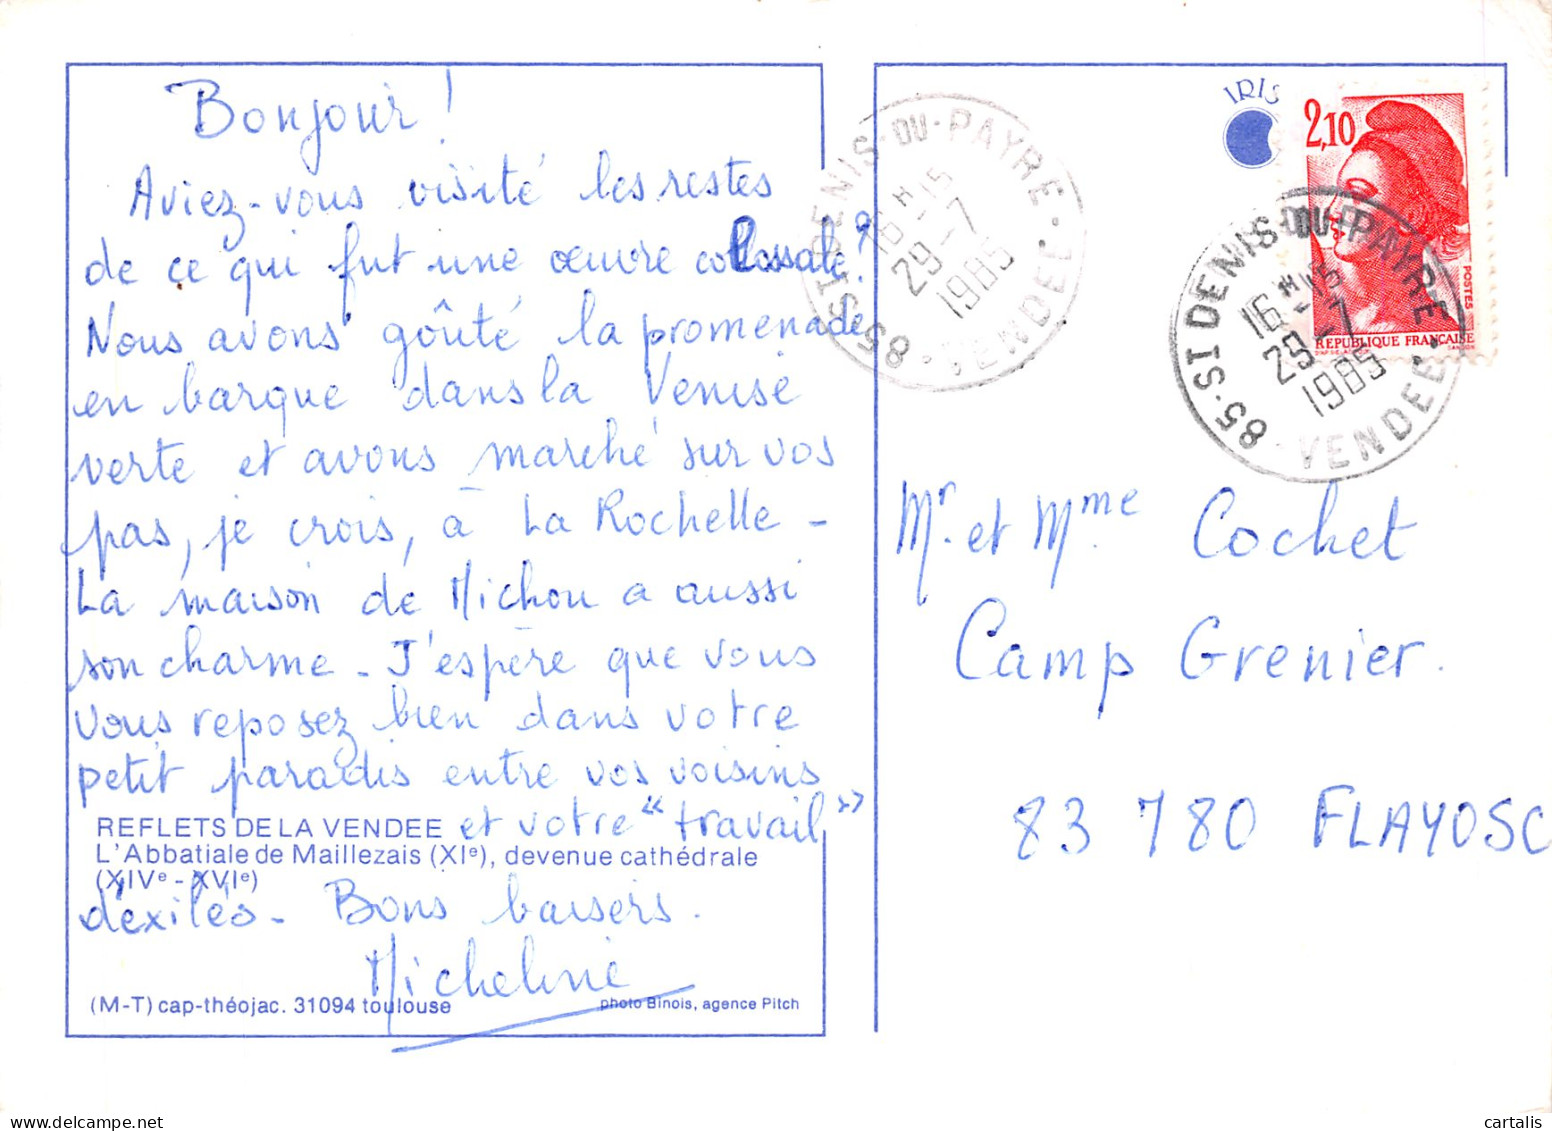 Bonjour !
Aviez-vous visité les restes
de ce qui fut une œuvre colossale ?
Nous avons goûté la promenade
en barque dans la Venise
verte et avons marché sur vos
pas, je crois, à La Rochelle -
La maison de Michou a aussi
son charme - J'espère que vous
vous reposez bien dans votre
petit paradis entre vos voisins
et votre "travail"
REFLETS DE LA VENDEE
L'Abbatiale de Maillezais (XIe), devenue cathédrale
(XIVe - XVIe)
d'exilés - Bons baisers.
Micheline
(M-T) cap-théojac. 31094 toulouse
photo Binois, agence Pitch
85 · ST DENIS-DU-PAYRE · VENDEE
16 H 15
29 - 7
1985
IRIS
2,10
POSTES
REPUBLIQUE FRANÇAISE
85 · ST DENIS-DU-PAYRE · VENDEE
16 H 15
29 - 7
1985
Mr. et Mme Cochet
Camp Grenier.
83 780 FLAYOSC
cartalis